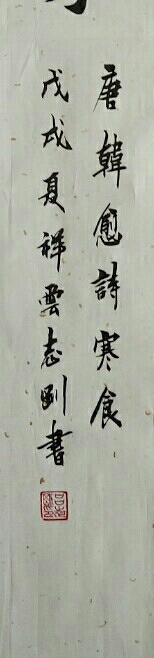 唐韓愈詩寒食
戊戌夏祥雲志剛書